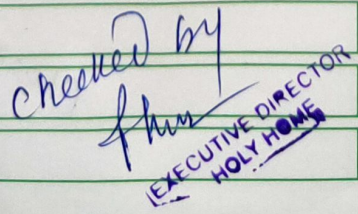 checked by
EXECUTIVE DIRECTOR
HOLY HOME